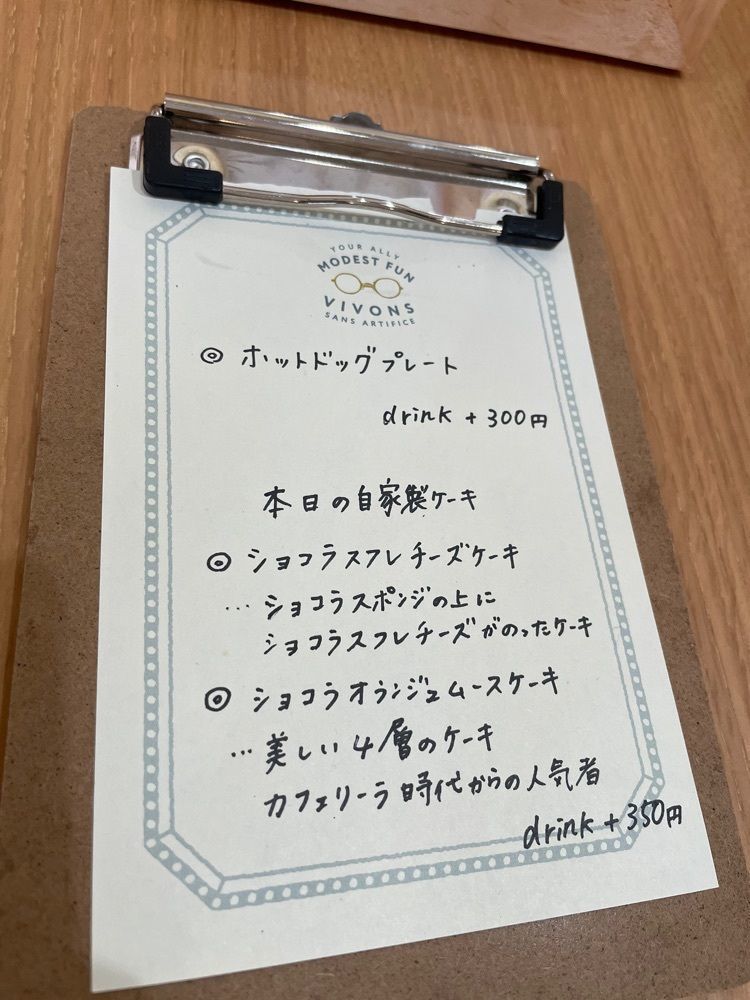 YOUR ALLY
MODEST FUN
VIVONS
SANS ARTIFICE
◎ ホットドッグプレート
drink + 300円
本日の自家製ケーキ
◎ ショコラスフレチーズケーキ
… ショコラスポンジの上に
ショコラスフレチーズがのったケーキ
◎ ショコラオランジュムースケーキ
… 美しい4層のケーキ
カフェリーラ時代からの人気者
drink + 350円